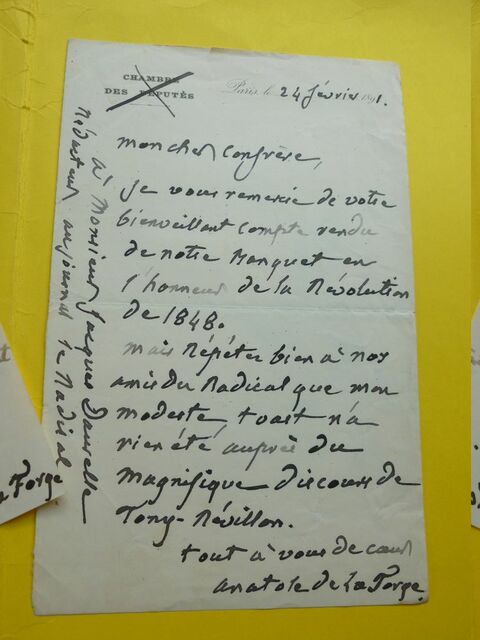 CHAMBRE
DES DÉPUTÉS
Paris, le 24 février 1891.
mon cher Confrère,
je vous remercie de votre
bienveillant compte rendu
de notre Banquet en
l'honneur de la Révolution
de 1848.
mais Répétez bien à nos
amis du Radical que mon
modeste, toast n'a
rien été auprès du
magnifique discours de
Tony-Révillon.
tout à vous de cœur
anatole de La Forge.
à Monsieur Jacques
Rédacteur au journal le Radical
Forge